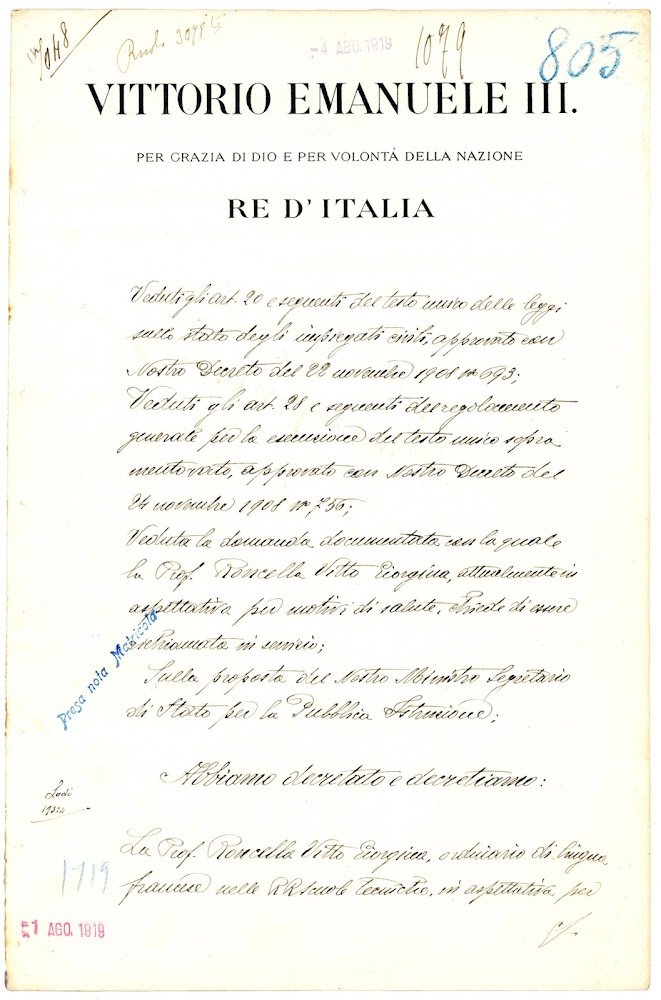 1048
3048
-4 AGO. 1919
1079
805
VITTORIO EMANUELE III.
PER GRAZIA DI DIO E PER VOLONTÀ DELLA NAZIONE
RE D'ITALIA
Veduti gli art. 20 e seguenti del testo unico delle leggi
sullo stato degli impiegati civili, approvato con
Nostro Decreto del 22 novembre 1908 nº 693;
Veduti gli art. 28 e seguenti del regolamento
generale per la esecuzione del testo unico sopra
mentovato, approvato con Nostro Decreto del
24 novembre 1908 nº 756;
Veduta la domanda documentata con la quale
la Prof. Roncella Vitto Giorgina, attualmente in
aspettativa per motivi di salute, chiede di essere
richiamata in servizio;
Presa nota Matricola
Sulla proposta del Nostro Ministro Segretario
di Stato per la Pubblica Istruzione;
Abbiamo decretato e decretiamo:
Lodi
19324
La Prof. Roncella Vitto Giorgina, ordinario di lingua
francese nelle RR Scuole Tecniche, in aspettativa per
1719
1 AGO. 1919